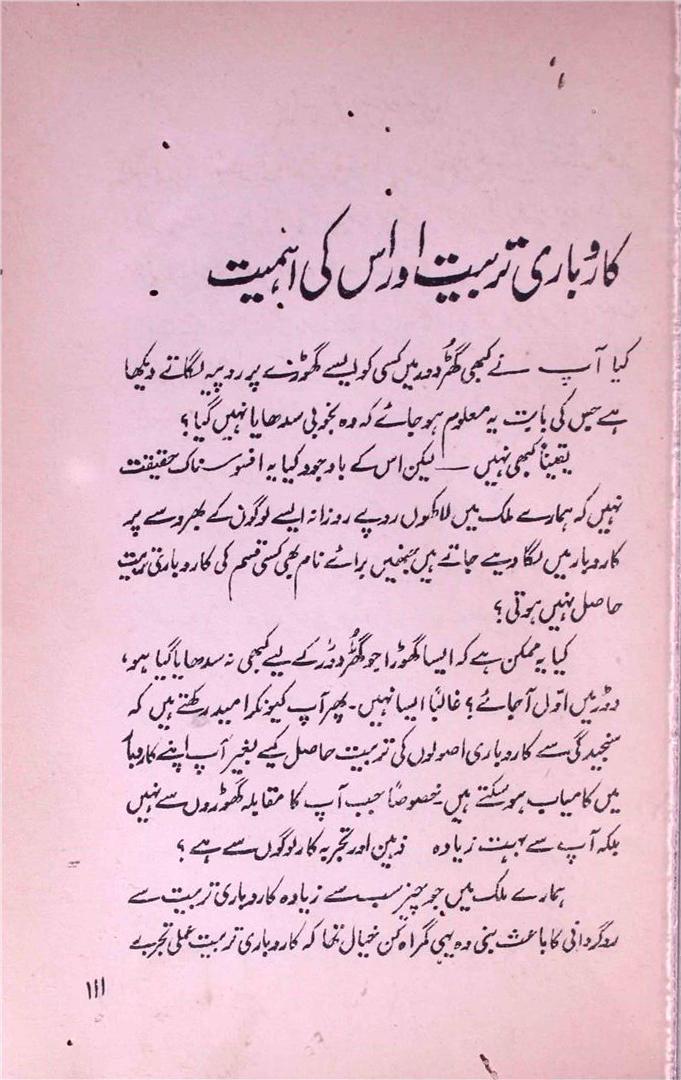 کاروباری تربیت اور اس کی اہمیت
کیا آپ نے کبھی گھڑ دوڑ میں کسی کو ایسے گھوڑے پر روپیہ لگاتے دیکھا
ہے جس کی بابت یہ معلوم ہو جائے کہ وہ بخوبی سدھایا نہیں گیا؟
یقیناً کبھی نہیں — لیکن اس کے باوجود کیا یہ افسوسناک حقیقت
نہیں کہ ہمارے ملک میں لاکھوں روپے روزانہ ایسے لوگوں کے بھروسے پر
کاروبار میں لگا دیے جاتے ہیں جنھیں برائے نام بھی کسی قسم کی کاروباری تربیت
حاصل نہیں ہوتی؟
کیا یہ ممکن ہے کہ ایسا گھوڑا جو گھڑ دوڑ کے لیے کبھی نہ سدھایا گیا ہو،
دوڑ میں اوّل آ جائے؟ غالباً ایسا نہیں۔ پھر آپ کیونکر امید رکھتے ہیں کہ
سنجیدگی سے کاروباری اصولوں کی تربیت حاصل کیے بغیر آپ اپنے کاروبار
میں کامیاب ہو سکتے ہیں۔ خصوصاً جب آپ کا مقابلہ گھوڑوں سے نہیں
بلکہ آپ سے بہت زیادہ ذہین اور تجربہ کار لوگوں سے ہے؟
ہمارے ملک میں جو چیز سب سے زیادہ کاروباری تربیت سے
روگردانی کا باعث بنی وہ یہی گمراہ کن خیال تھا کہ کاروباری تربیت عملی تجربے
۱۱۱